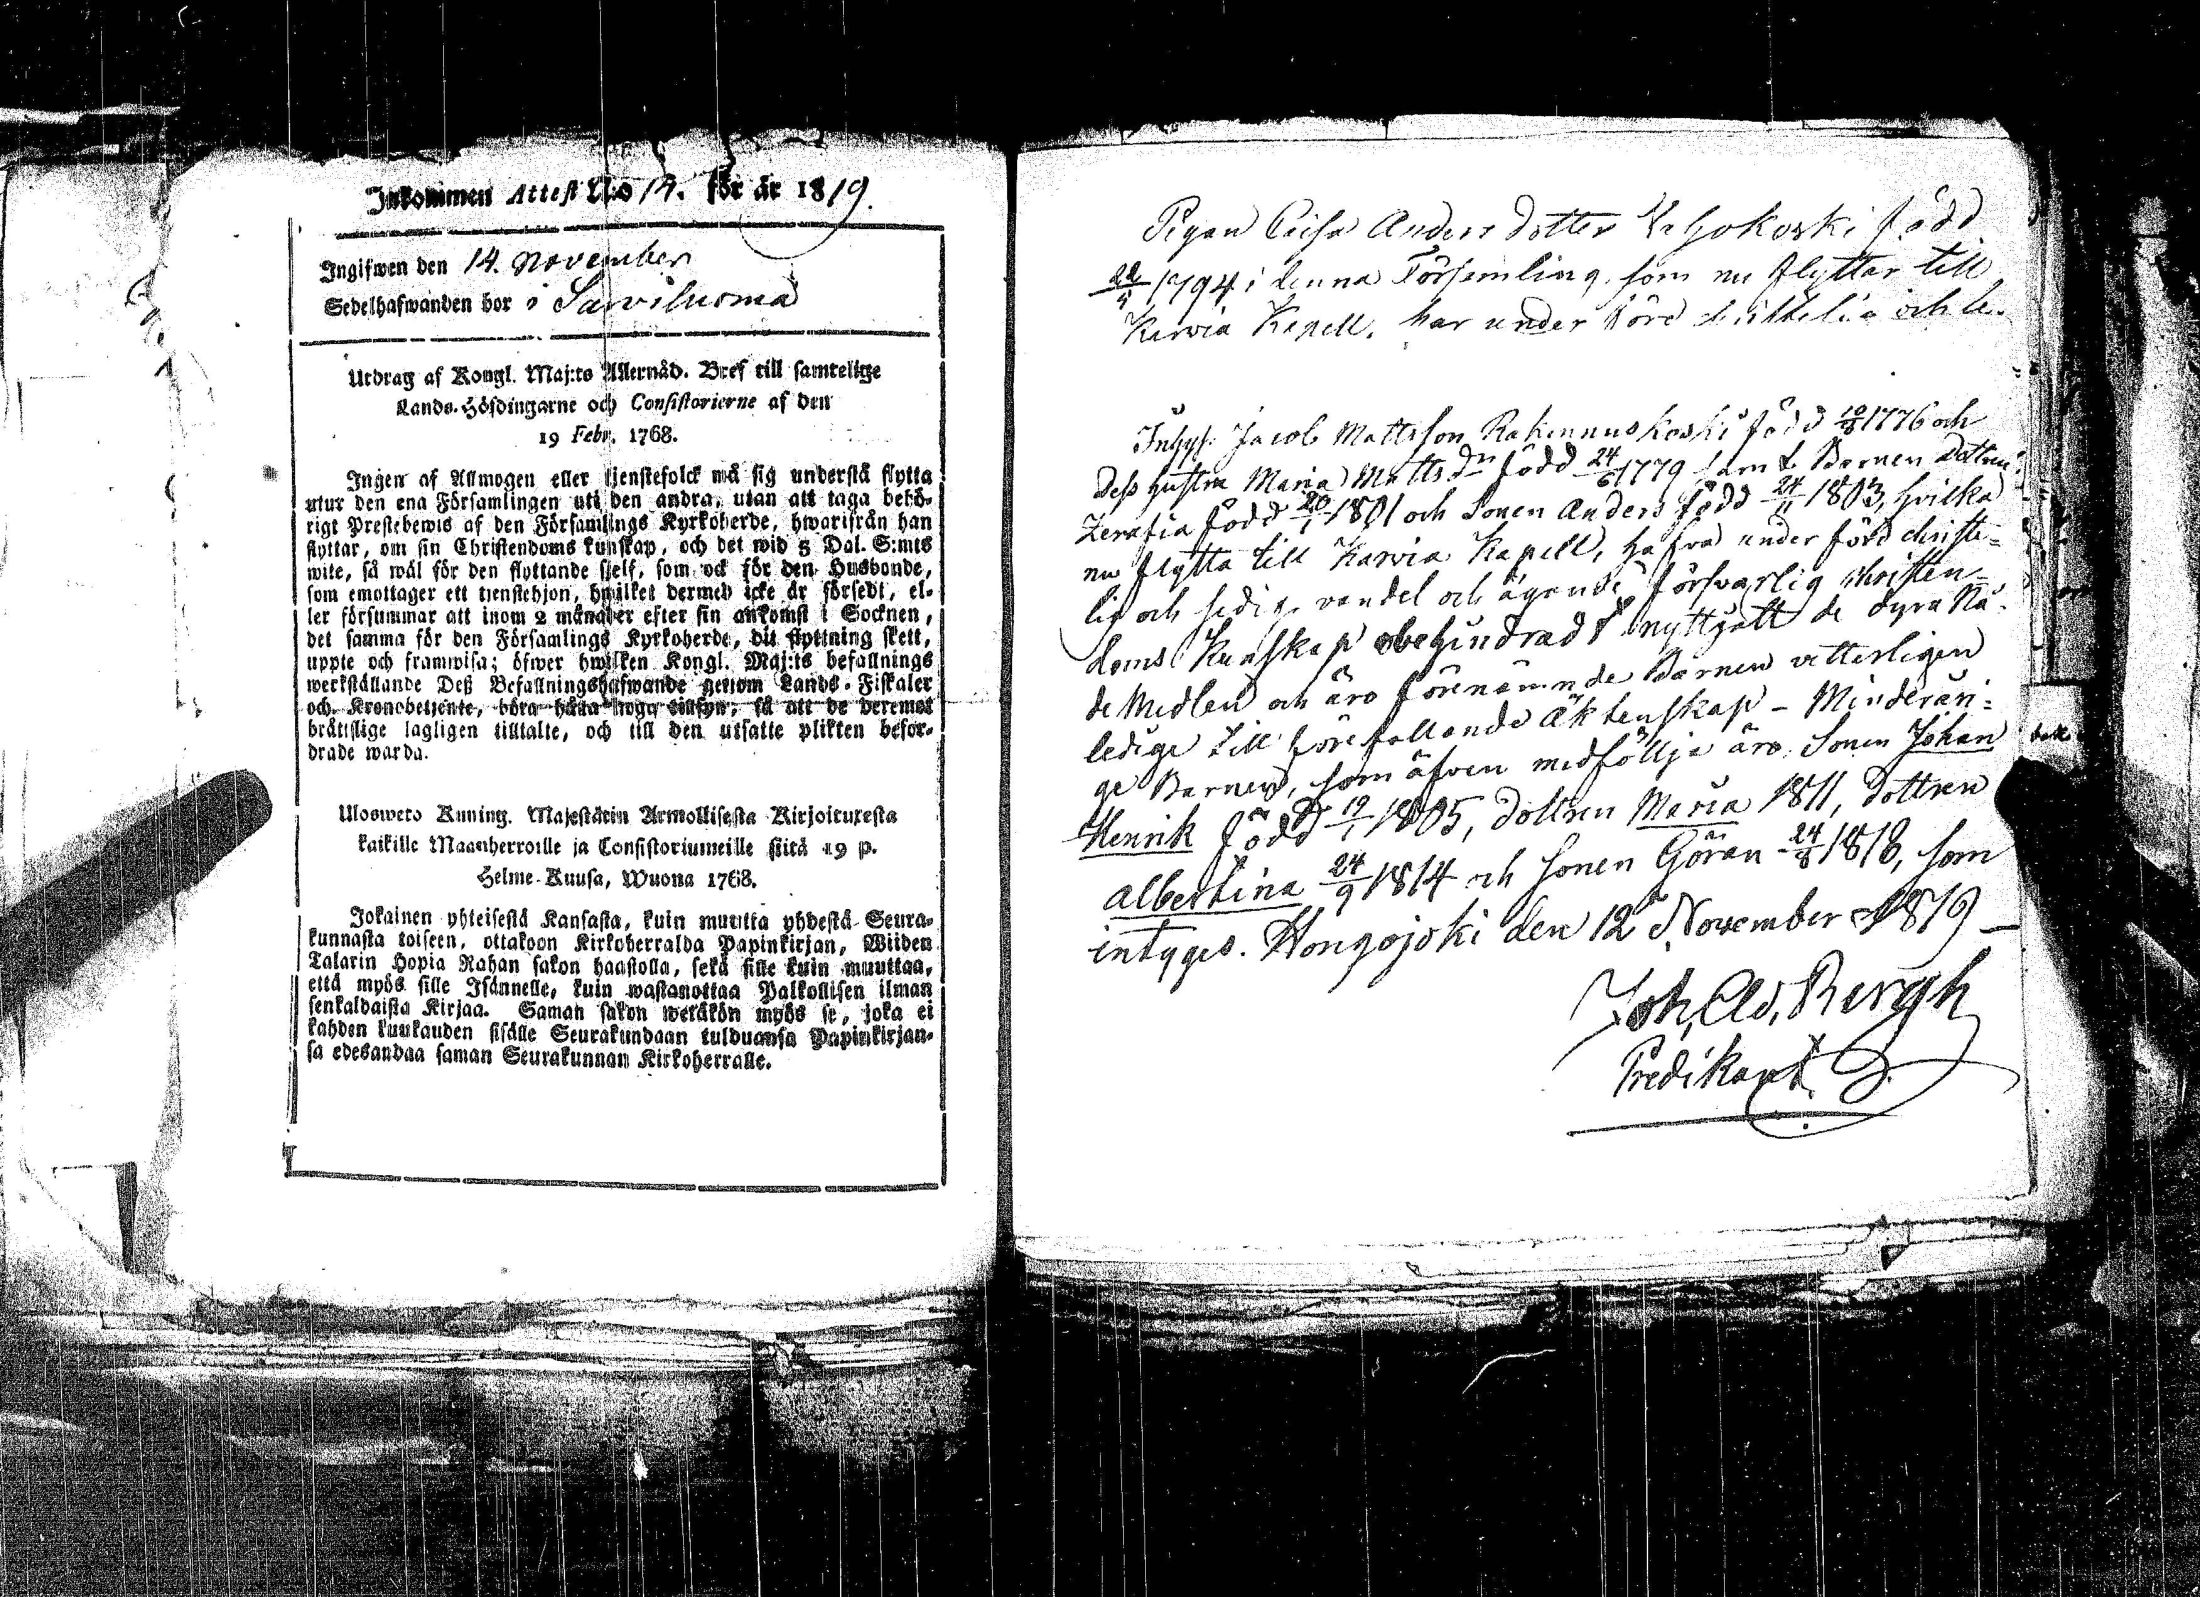 Inkommen Attest N:o 14. för år 1819.
Ingifwen den 14. November
Sedelhafwanden bor i Sarviluoma
Utdrag af Kongl. Maj:ts Allernåd. Bref till samtelige
Lands-Höfdingarne och Consistorierne af den
19 Febr. 1768.
Ingen af Allmogen eller tjenstefolck må sig understå flytta
utur den ena Församlingen uti den andra, utan att taga behö-
rigt Prestebewis af den Församlings Kyrkoherde, hwarifrån han
flyttar, om sin Christendoms kunskap, och det wid 5 Dal. S:mts
wite, så wäl för den flyttande sjelf, som ock för den Husbonde,
som emottager ett tienstehjon, hwilket dermed icke är försedt, el-
ler försummar att inom 2 månader efter sin ankomst i Socknen,
det samma för den Församlings Kyrkoherde, dit flyttning skett,
uppte och framwisa; öfwer hwilken Kongl. Maj:ts befallnings
werkställande Deß Befallningshafwande genom Lands-Fiskaler
och Kronobetjente, böra hålla noga tillsyn, så att de deremot
bråttslige lagligen tilltalte, och till den utsatte plikten befor-
drade warda.
Ulosweto Kuning. Majestätin Armollisesta Kirjoituxesta
kaikille Maanherroille ja Consistoriumeille siitä 19 p.
Helme-Kuusa, Wuona 1768.
Jokainen yhteisestä Kansasta, kuin muutta yhdestä Seura-
kunnasta toiseen, ottakoon Kirkoherralda Papinkirjan, Wiiden
Talarin Hopia Rahan sakon haastolla, sekä sille kuin muuttaa,
että myös sille Isännelle, kuin wastanottaa Palkollisen ilman
senkaldaista Kirjaa. Saman sakon wetäkön myös se, joka ei
kahden kuukauden sisälle Seurakundaan tulduansa Papinkirjan-
sa edesandaa saman Seurakunnan Kirkoherralle.
Pigan Caisa Anders dotter född
1794 i denna Församling, som nu flyttar till
Karvia Kapell, har under förd
Inhys. Jacob Mattsson Rakennuskoski född 10/8 1776 och
Dess hustru Maria Matts dr född 24/6 1779 samt Barnen Dottren
Zerafia född 20/1 1801 och Sonen Anders född 24/11 1803, hvilka
nu flytta till Karvia Kapell, hafva under förd christe-
lig och sedig vandel och ägande försvarlig christen-
doms Kunskap obehindradt nyttjatt de dyra Nå-
de Medlen och äro förenämnde Barnen vitterligen
ledige till förefallande äktenskap – Minderåri-
ge Barnen, som äfven medföllja äro Sonen Johan
Henrik född 19/1 1805, dottren Maria 1811, Dottren
Albertina 24/9 1814 och Sonen Göran 24/8 1818, som
intyges. Hongojoki den 12 November 1819 –
Joh, Ad, Bergh
Predikant.